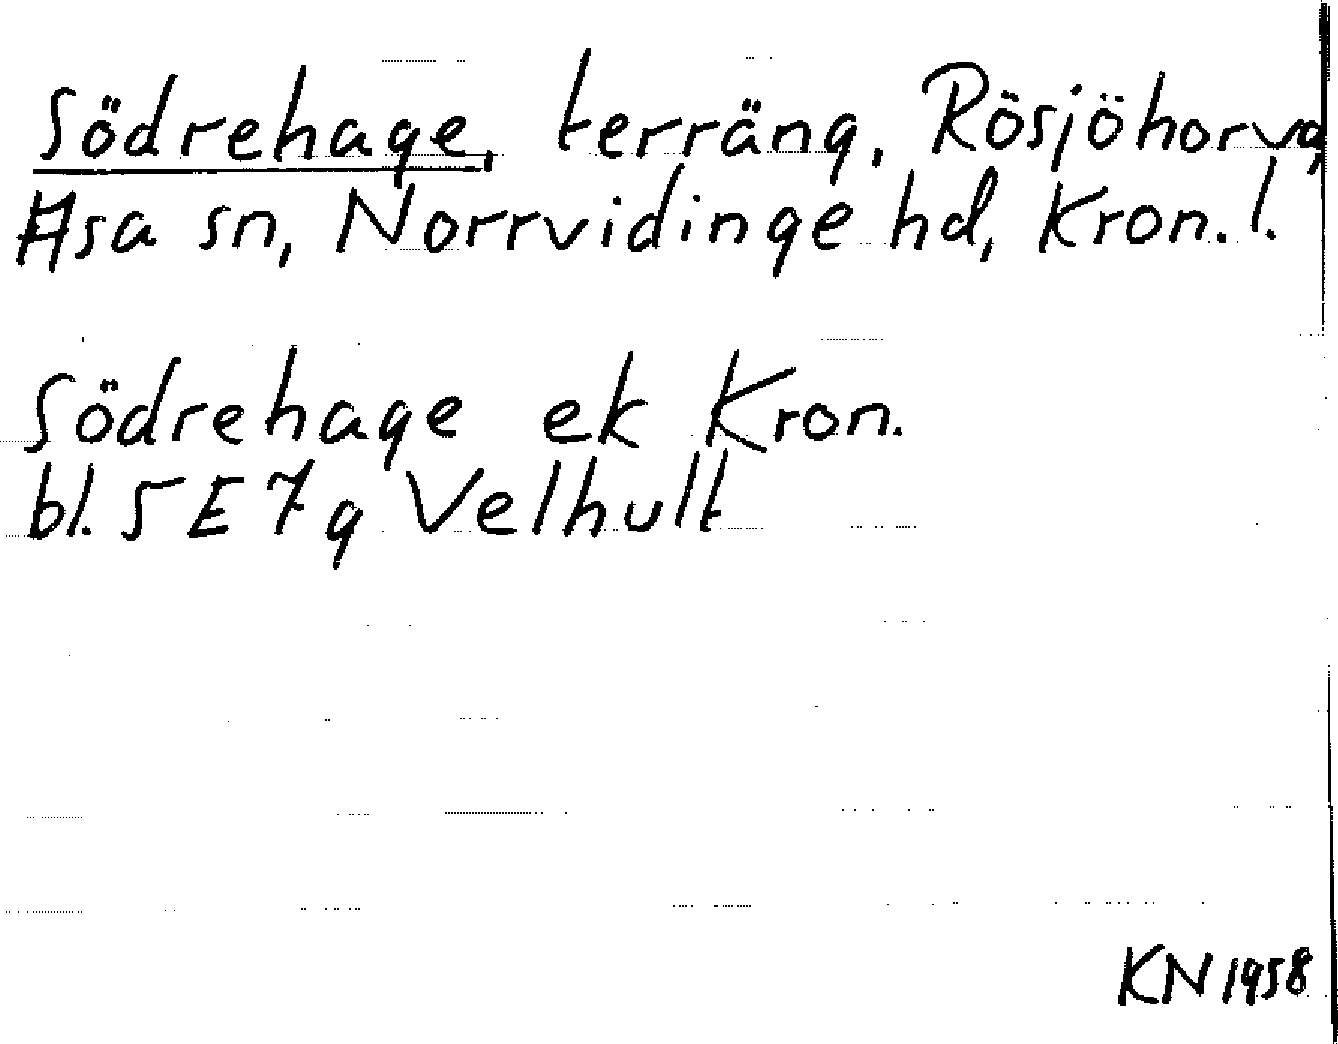 Södrehage, terräng, Rösjöhorva,
Asa sn, Norrvidinge hd, Kron. l.
Södrehage ek Kron.
bl. 5E7g Velhult
KN 1958